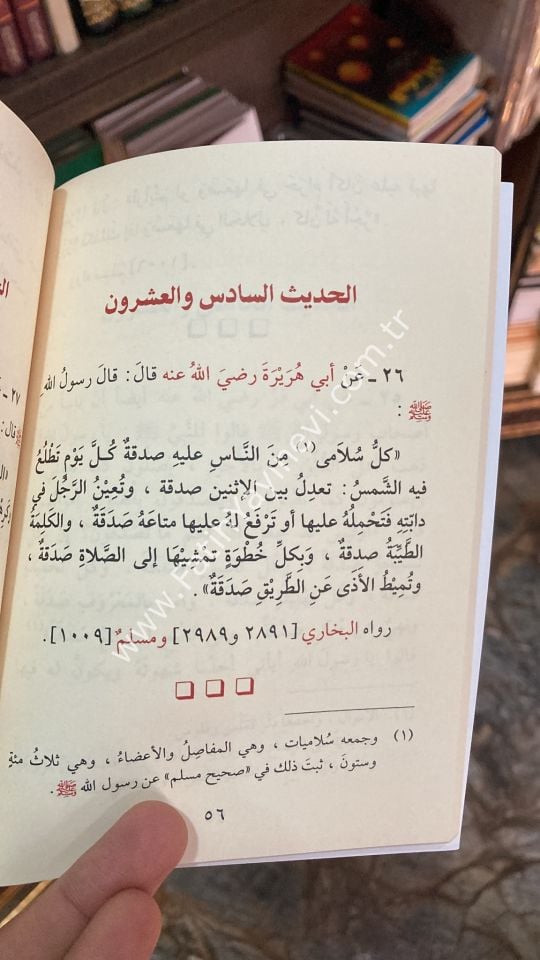 الحديث السادس والعشرون
٢٦ ـ عَنْ أبي هُرَيْرَةَ رضيَ اللهُ عنه قالَ: قالَ رسولُ اللهِ
ﷺ :
«كلُّ سُلامَى(١) مِنَ النَّاسِ عليهِ صدقةٌ كُلَّ يَوْمٍ تَطْلُعُ
فيهِ الشَّمسُ: تعدِلُ بينَ الإثنينِ صدقة ، وتُعِيْنُ الرَّجُلَ في
دابّتِهِ فَتَحْمِلُهُ عليها أو تَرْفَعُ لهُ عليها متاعَهُ صَدَقَةٌ ، والكَلِمَةُ
الطَّيِّبَةُ صدقةٌ ، وَبِكلِّ خُطْوَةٍ تمشيْهَا إلى الصَّلاةِ صَدَقةٌ ،
وتُمِيْطُ الأذَى عَنِ الطَّرِيْقِ صَدَقَةٌ».
رواه البخاري [٢٨٩١ و٢٩٨٩] ومسلمٌ [١٠٠٩].
(١) وجمعه سُلاميات ، وهي المفاصِلُ والأعضاءُ ، وهي ثلاثُ مئةٍ
وستونَ ، ثبتَ ذلك في «صحيح مسلم» عن رسول الله ﷺ .
٥٦